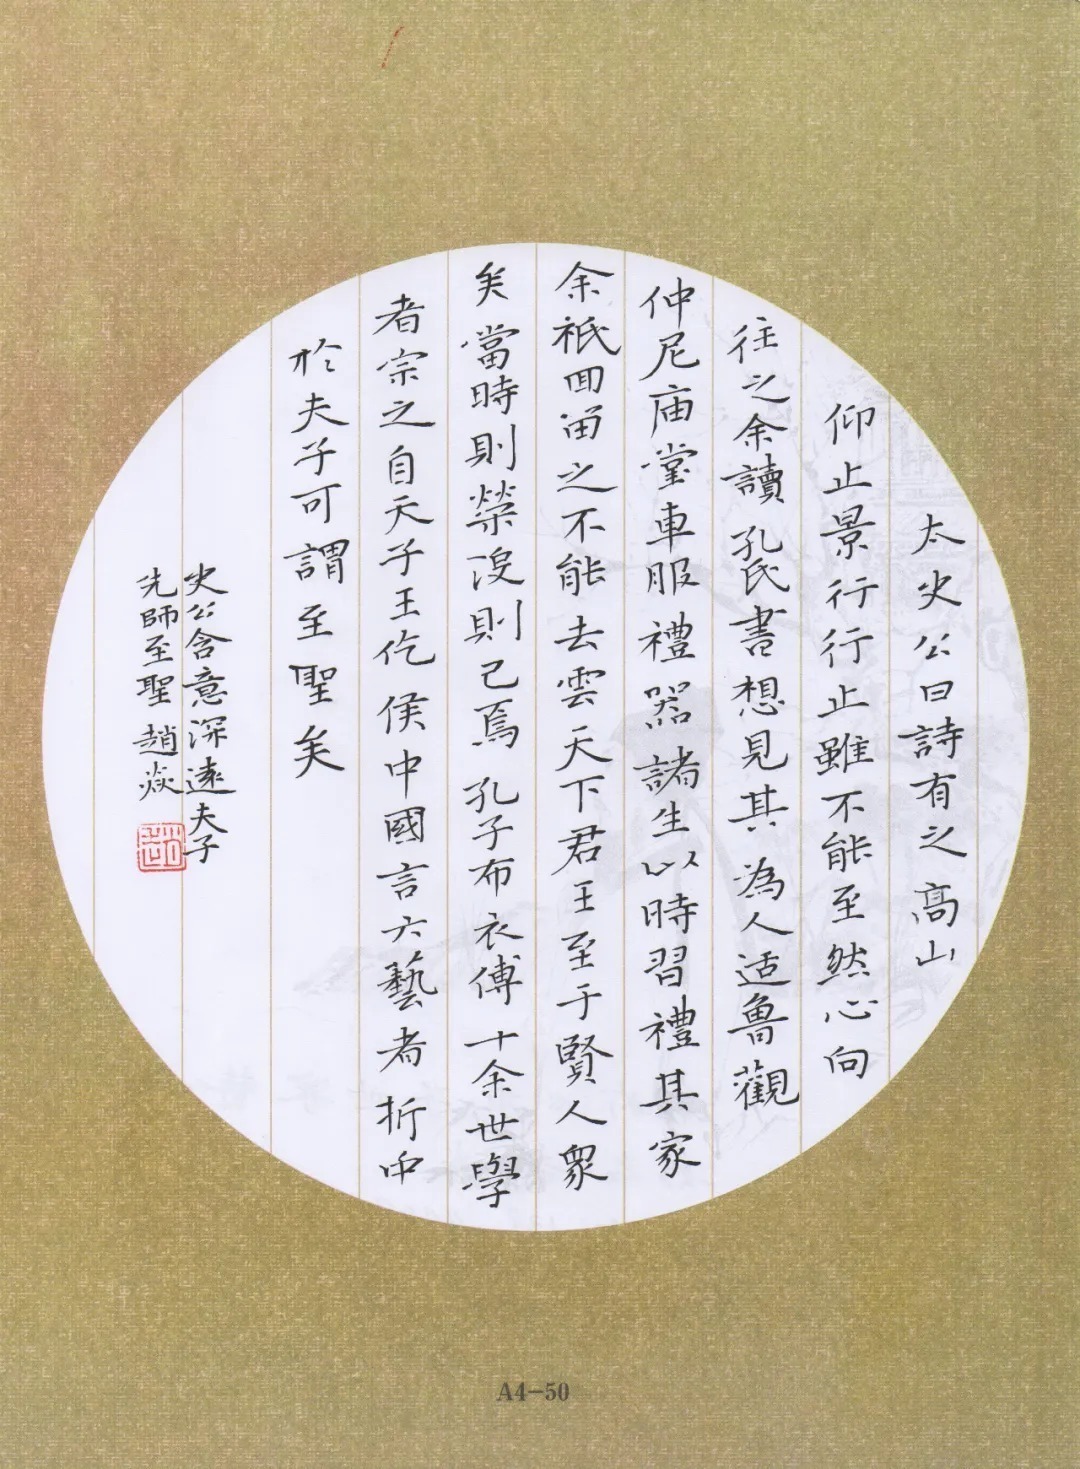 太史公曰詩有之高山
仰止景行行止雖不能至然心向
往之余讀孔氏書想見其為人适魯觀
仲尼庙堂車服禮器諸生以時習禮其家
余祗回留之不能去雲天下君王至于賢人衆
矣當時則榮没則已焉孔子布衣傅十余世學
者宗之自天子王仡侯中國言六藝者折中
於夫子可謂至聖矣
史公含意深遠夫子
先師至聖趙焱
趙
A4-50